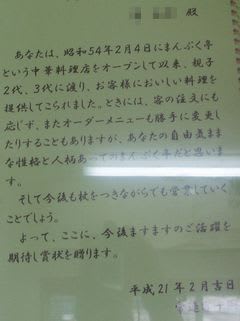 殿
あなたは、昭和54年2月4日にまんぷく亭
という中華料理店をオープンして以来、親子
2代、3代に渡り、お客様においしい料理を
提供してこられました。ときには、客の注文にも
応じず、またオーダーメニューも勝手に変更し
たりすることもありますが、あなたの自由気まま
な性格と人柄あってのまんぷく亭だと思いま
す。
そして今後も杖をつきながらでも営業していく
ことでしょう。
よって、ここに、今後ますますのご活躍を
期待し賞状を贈ります。
平成21年2月吉日